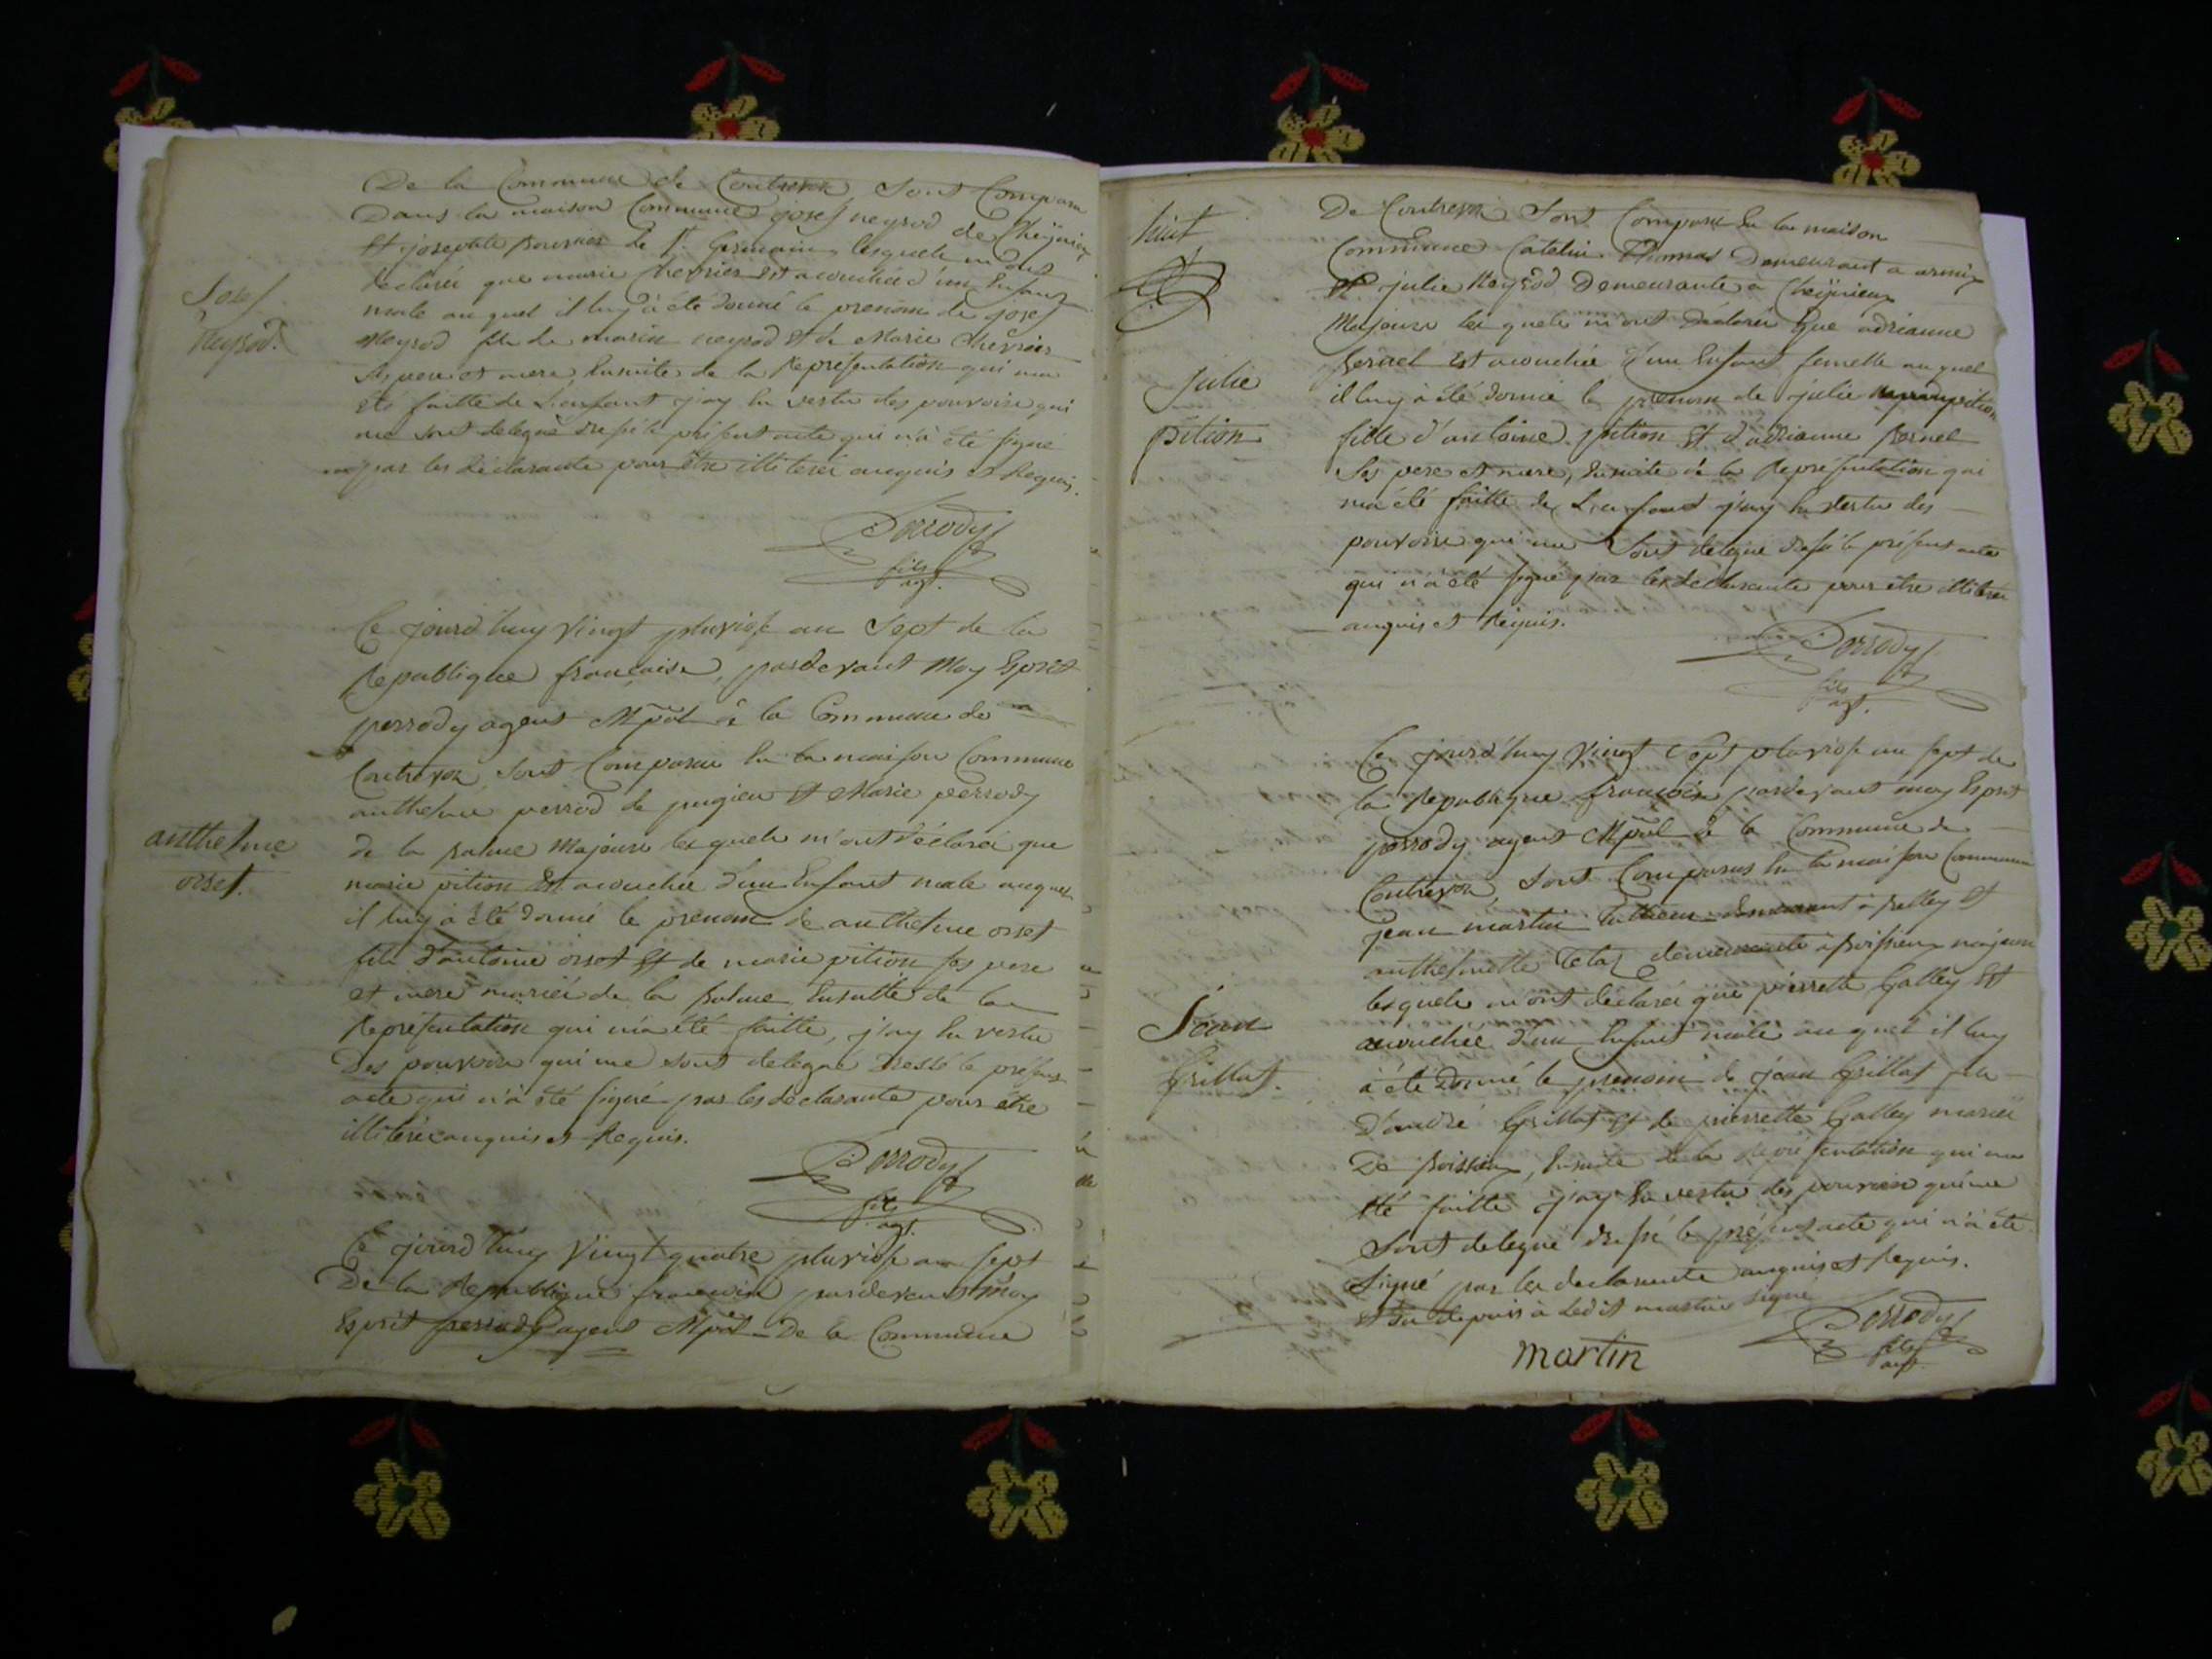 De la Commune de Contrevoz Sont Comparu
Dans la maison Commune josef neyrod de Cheÿnieu
Et josephte bouvier de St. Germain lesquels m'ont
déclaré que marie Chevrier Est acouchée d'un Enfant
male auquel il luy à été donné le prenom de josef
Neyrod fils de marin neyrod Et de Marie Chevrier
Ses pere et mere, Ensuite de la Représentation qui ma
été faitte de L'enfant j'ay En vertu des pouvoirs qui
me sont delegué dressé le présent acte qui n'à été signé
par les déclarants pour être illiterés enquis et Requis.
Josef
Neyrod.
Perrody
fils
agt.
Ce jourd'huy Vingt pluviose an Sept de la
République française, pardevant Moy Esprit
perrody agent Mpäl à la Commune de
Contrevoz Sont Comparu En la maison Commune
anthelme perrod de pugieu Et Marie perrody
de la balme Majeurs lesquels m'ont déclaré que
marie pition Est acouchée d'un Enfant male auquel
il luy à été donné le prenom de anthelme orset
fils d'antoine orset Et de marie pition ses pere
et mere mariés de la balme Ensuitte de la
Représentation qui m'a été faitte, j'ay En vertu
Des pouvoirs qui me sont delegué dressé le présent
acte qui n'à été signé par les déclarants pour être
illiterés enquis et Requis.
anthelme
orset.
Perrody
fils
agt.
Ce jourd'huy Vingt quatre pluviose an Sept
De la République française pardevant moy
Esprit perrody agent Mpäl De la Commune
huit
De Contrevoz Sont Comparu En la maison
Commune Catelin Thomas Demeurant a armix
Et julie Neyrod Demeurante à Cheÿnieu
Majeurs lesquels m'ont Déclaré que adrianne
bernel Est acouchée d'un Enfant femelle auquel
il luy à été donné le prenom de julie pition
fille d'antoine pition Et d'adrianne bernel
Ses pere et mere, Ensuite de la Représentation qui
m'a été faitte de L'enfant j'ay En vertu des
pouvoirs qui me Sont delegué dressé le présent acte
qui n'à été signé par les déclarants pour être illiterés
enquis et Requis.
julie
pition
Perrody
fils
agt.
Ce jourd'huy Vingt Sept pluviose an sept de
la République française pardevant moy Esprit
perrody agent Mpäl de la Commune de
Contrevoz, Sont Comparus En la maison Commune
jean martin demeurant à belley Et
anthelmette demeurante à poissieu majeurs
lesquels m'ont déclaré que pierrette Galley Est
acouchée d'un Enfant male auquel il luy
à été donné le prenom de jean Grillat fils
D'andré Grillat Et de pierrette Galley mariés
De poissieu, Ensuite de la Représentation qui ma
été faitte j'ay En vertu des pouvoirs qui me
Sont delegué dressé le présent acte qui n'à été
Signé par les declarants enquis et Requis.
Et du depuis à Ledit martin signé
Jean
Grillat.
martin
Perrody
fils
agt.